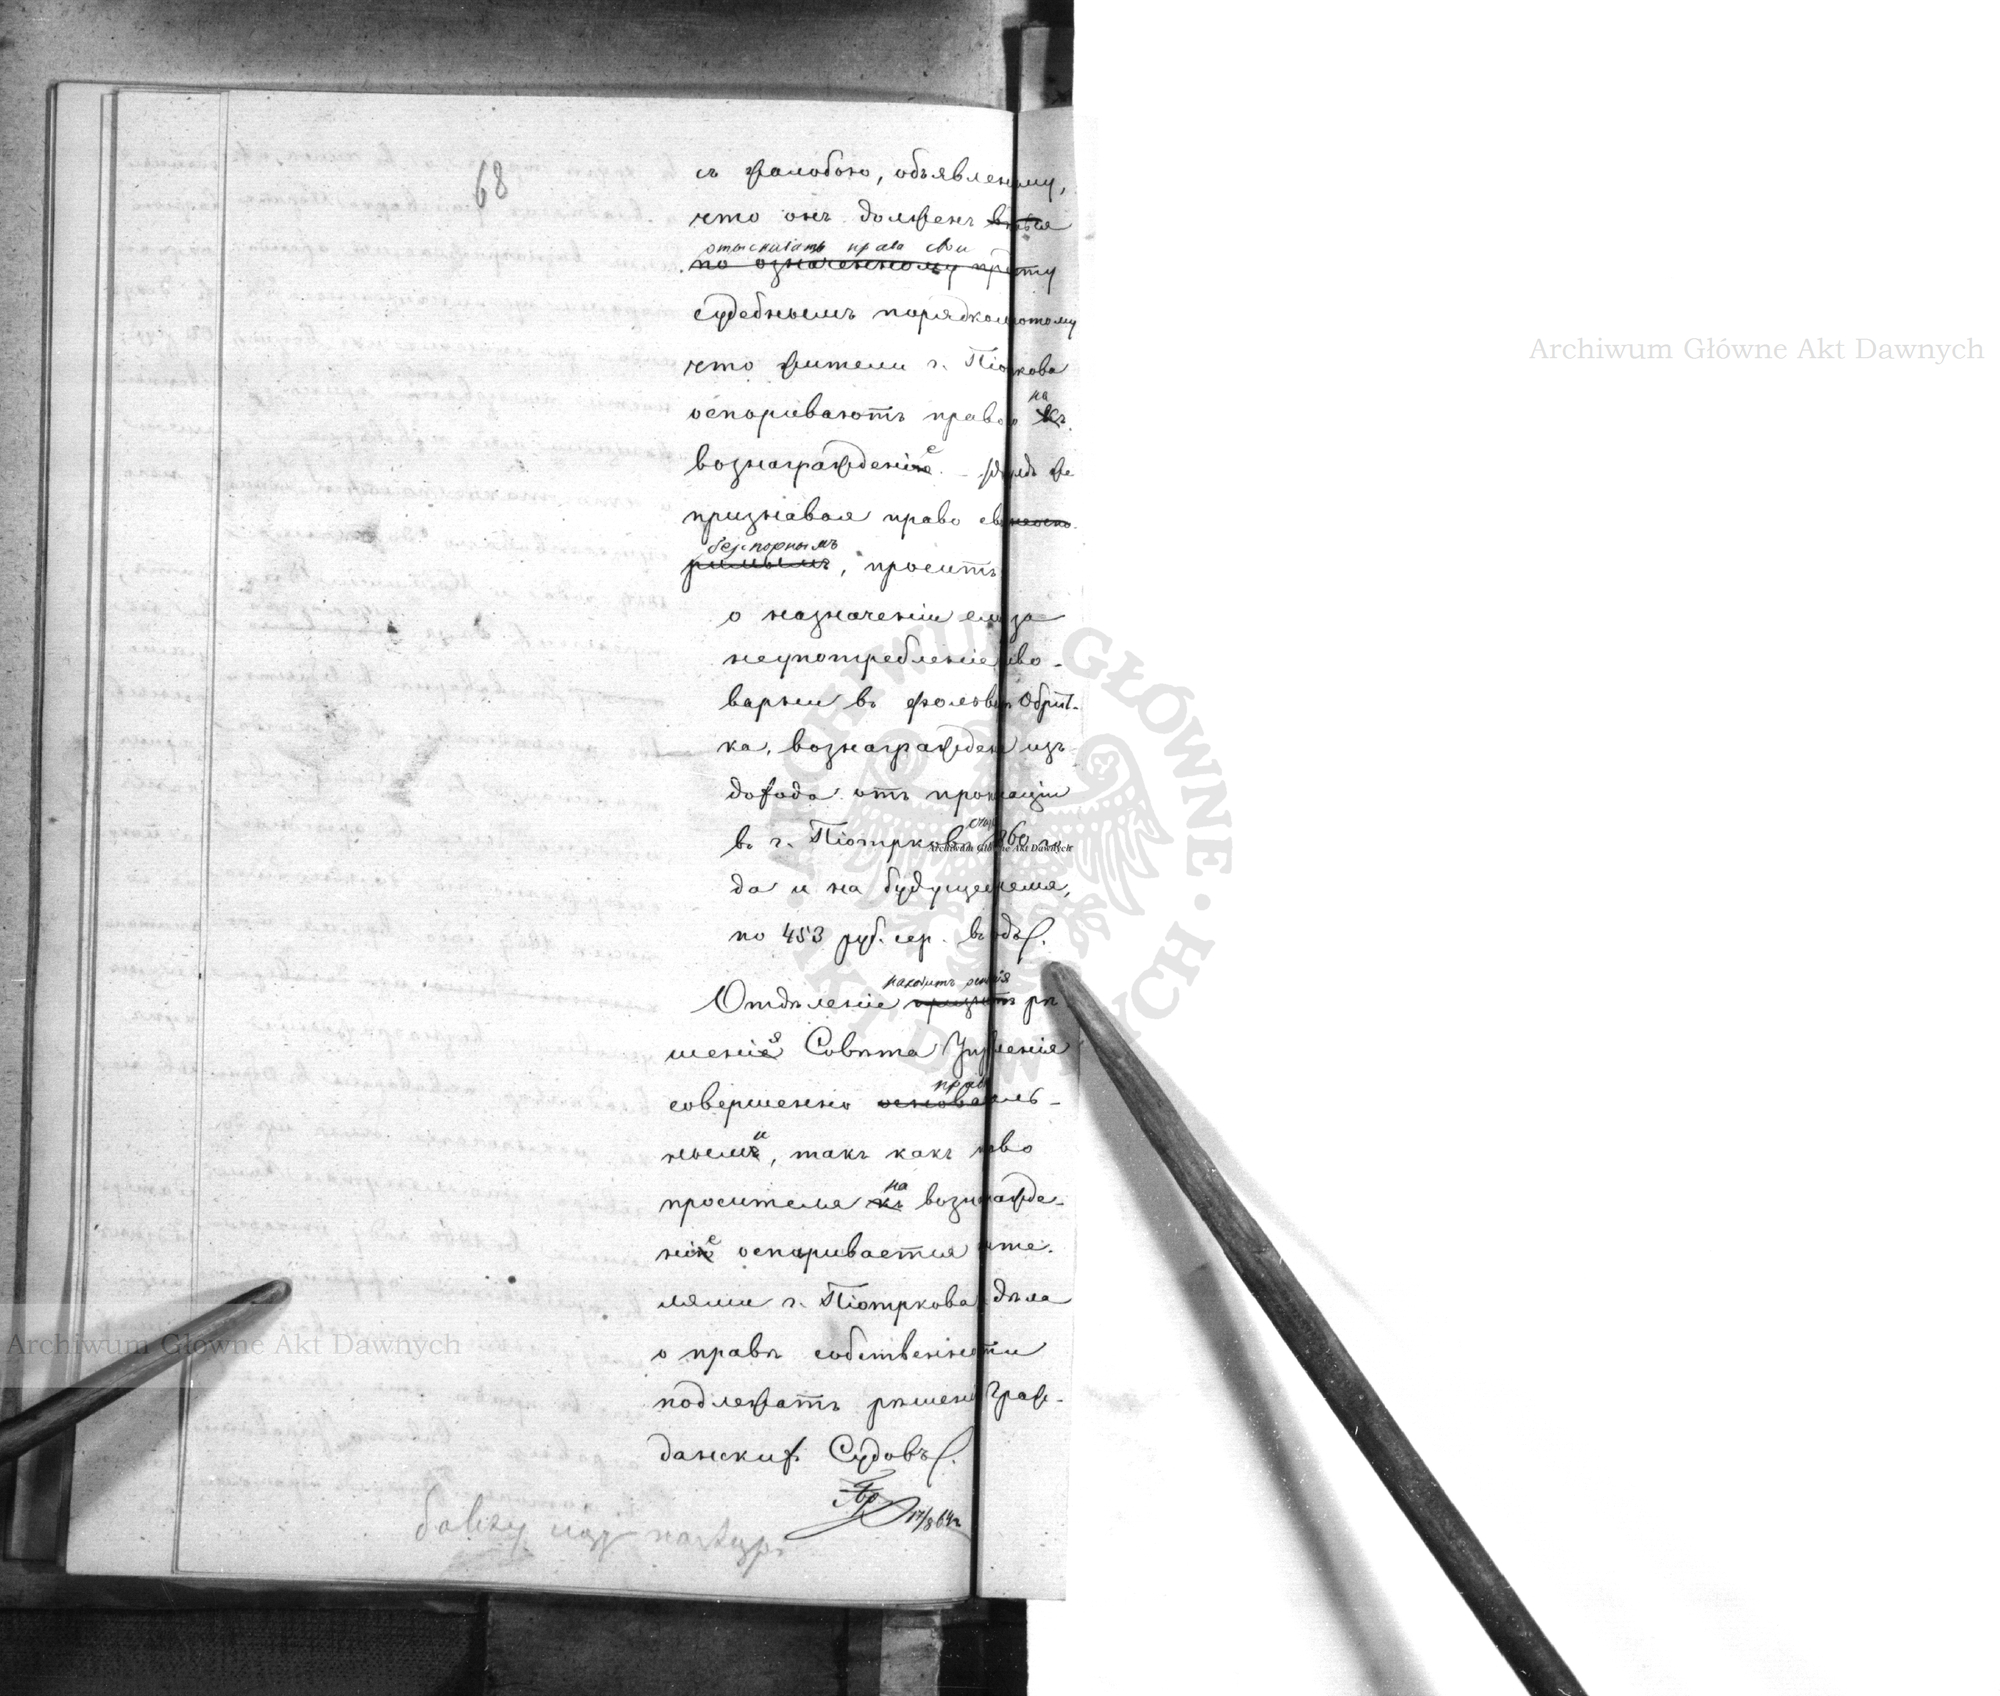 68
съ жалобою, объявлен му,
что онъ должен
отыскивать права свои
по означенному пр ту
судебнымъ порядком потому
что жители г. Піо кова
оспориваютъ право на къ
вознагражденіе. – же
признавая право
безпорнымъ
римымъ, просить
о назначеніи ем за
неупотребленіе иво-
варни въ фольв Обрит-
ка, вознагражден изъ
дохода отъ проп аціи
въ г. Піотрков 1860 го
да и на будуще емя,
по 453 руб. сер. въ одъ.
находитъ
Отдѣленіе рѣ-
шенія Совѣта Упр ленія
совершенно прав основа ель-
нымъ и, такъ какъ во
просителя къ на вознагражде-
ніе оспоривается ите-
лями г. Піотркова дѣла
о правѣ собственности
подлежатъ рѣшен Граж-
данских Судовъ.
17/8 64 г.
Archiwum Główne Akt Dawnych
Archiwum Główne Akt Dawnych
Archiwum Główne Akt Dawnych
ARCHIWUM GŁÓWNE AKT DAWNYCH